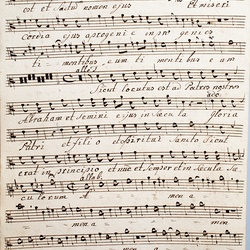 est et Sanctum nomen ejus Et miseri
Cordia ejus a progenie in pro genies
ti mentibus cum ti mentibus e am
allo
Sicut locutus est ad Patres nostros
Abraham et Semini ejus in Saecula gloria
Patri et filio et Spiritui Sancto Sicut
erat in principio et nunc et Semper et in Saecula Sae
culorum A men a
men a
men a